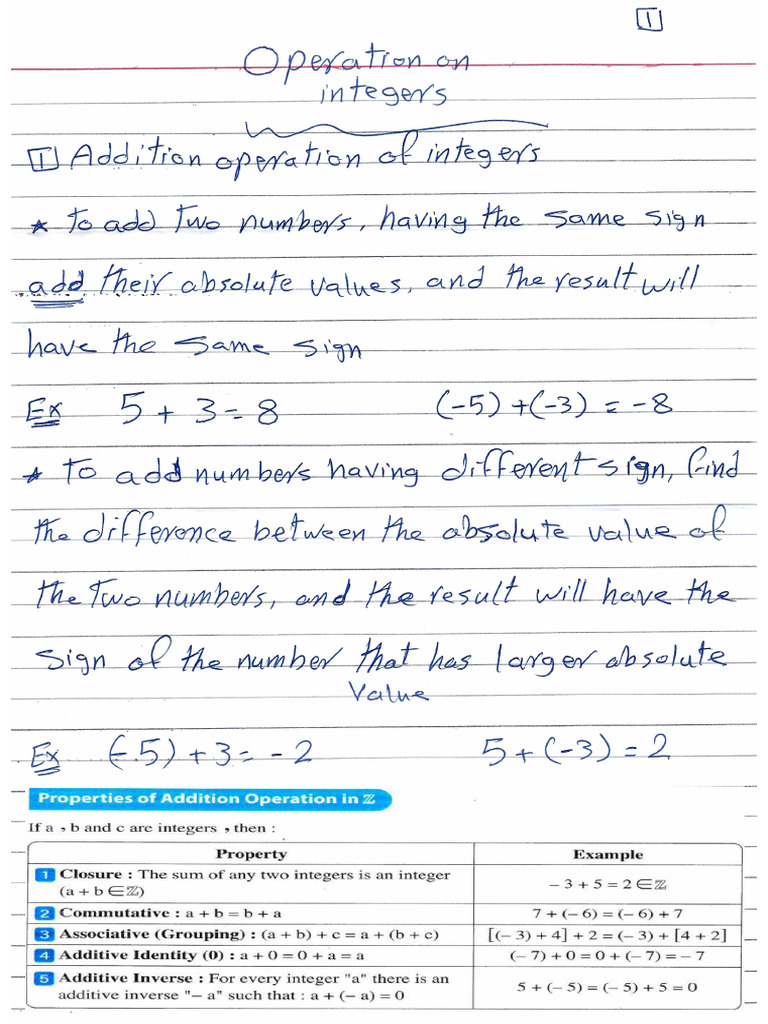 1
Operation on
integers
1 Addition operation of integers
* To add Two numbers, having the same sign
add their absolute values, and the result will
have the same sign
Ex 5 + 3 = 8 (-5) + (-3) = -8
* To add numbers having different sign, find
the difference between the absolute value of
the Two numbers, and the result will have the
sign of the number that has larger absolute
value
Ex (-5) + 3 = -2 5 + (-3) = 2
Properties of Addition Operation in ℤ
If a , b and c are integers , then :
Property Example
1 Closure : The sum of any two integers is an integer
(a + b ∈ ℤ) – 3 + 5 = 2 ∈ ℤ
2 Commutative : a + b = b + a 7 + (– 6) = (– 6) + 7
3 Associative (Grouping) : (a + b) + c = a + (b + c) [(– 3) + 4] + 2 = (– 3) + [4 + 2]
4 Additive Identity (0) : a + 0 = 0 + a = a (– 7) + 0 = 0 + (– 7) = – 7
5 Additive Inverse : For every integer "a" there is an
additive inverse "– a" such that : a + (– a) = 0 5 + (– 5) = (– 5) + 5 = 0